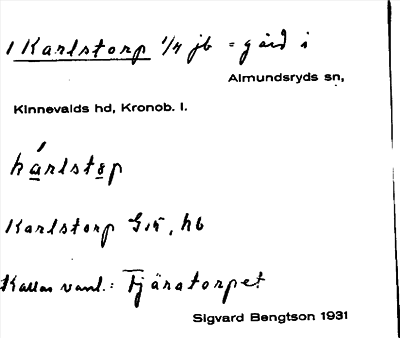 1 Karlstorp 1/4 jb = gård i
Almundsryds sn,
Kinnevalds hd, Kronob. l.
kárlstøp
Karlstorp Gsk, hb
Kallas vanl.: Tjäratorpet
Sigvard Bengtson 1931